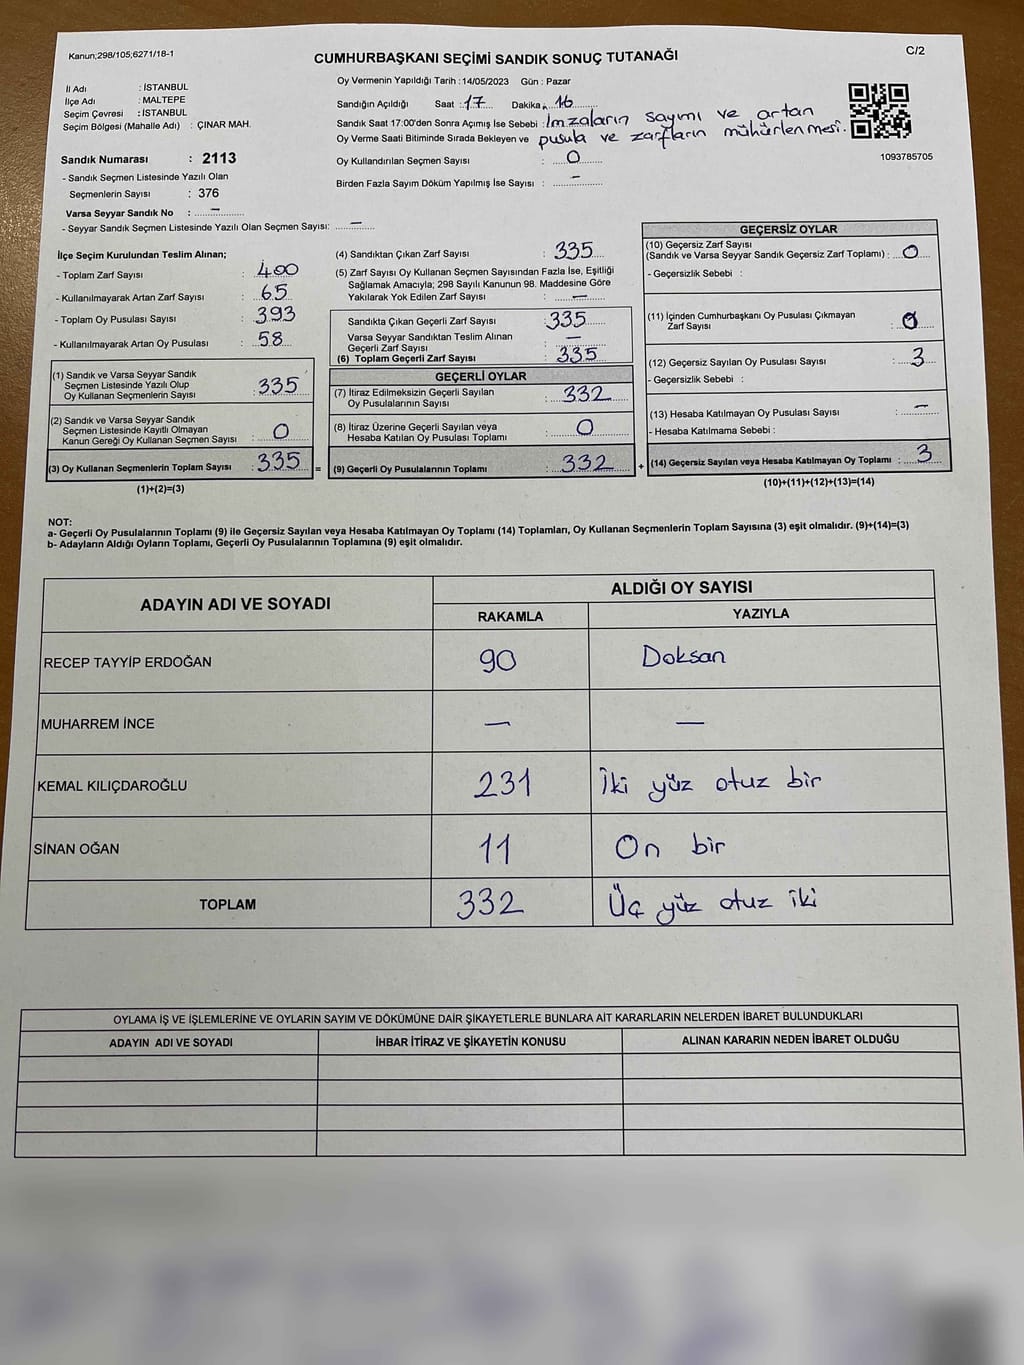 Kanun;298/105;6271/18-1
C/2
CUMHURBAŞKANI SEÇİMİ SANDIK SONUÇ TUTANAĞI
İl Adı : İSTANBUL
İlçe Adı : MALTEPE
Seçim Çevresi : İSTANBUL
Seçim Bölgesi (Mahalle Adı) : ÇINAR MAH.
Sandık Numarası : 2113
- Sandık Seçmen Listesinde Yazılı Olan
Seçmenlerin Sayısı : 376
Varsa Seyyar Sandık No : –
- Seyyar Sandık Seçmen Listesinde Yazılı Olan Seçmen Sayısı: –
Oy Vermenin Yapıldığı Tarih : 14/05/2023 Gün : Pazar
Sandığın Açıldığı Saat : 17 Dakika 16
Sandık Saat 17:00'den Sonra Açımış İse Sebebi : İmzaların sayımı ve artan
Oy Verme Saati Bitiminde Sırada Bekleyen ve pusula ve zarfların mühürlenmesi.
Oy Kullandırılan Seçmen Sayısı : 0
Birden Fazla Sayım Döküm Yapılmış İse Sayısı : –
1093785705
İlçe Seçim Kurulundan Teslim Alınan;
- Toplam Zarf Sayısı : 400
- Kullanılmayarak Artan Zarf Sayısı : 65
- Toplam Oy Pusulası Sayısı : 393
- Kullanılmayarak Artan Oy Pusulası : 58
(1) Sandık ve Varsa Seyyar Sandık
Seçmen Listesinde Yazılı Olup
Oy Kullanan Seçmenlerin Sayısı : 335
(2) Sandık ve Varsa Seyyar Sandık
Seçmen Listesinde Kayıtlı Olmayan
Kanun Gereği Oy Kullanan Seçmen Sayısı : 0
(3) Oy Kullanan Seçmenlerin Toplam Sayısı : 335 =
(1)+(2)=(3)
(4) Sandıktan Çıkan Zarf Sayısı : 335
(5) Zarf Sayısı Oy Kullanan Seçmen Sayısından Fazla İse, Eşitliği
Sağlamak Amacıyla; 298 Sayılı Kanunun 98. Maddesine Göre
Yakılarak Yok Edilen Zarf Sayısı : –
Sandıkta Çıkan Geçerli Zarf Sayısı : 335
Varsa Seyyar Sandıktan Teslim Alınan
Geçerli Zarf Sayısı : –
(6) Toplam Geçerli Zarf Sayısı : 335
GEÇERLİ OYLAR
(7) İtiraz Edilmeksizin Geçerli Sayılan
Oy Pusulalarının Sayısı : 332
(8) İtiraz Üzerine Geçerli Sayılan veya
Hesaba Katılan Oy Pusulası Toplamı : 0
(9) Geçerli Oy Pusulalarının Toplamı : 332 +
GEÇERSİZ OYLAR
(10) Geçersiz Zarf Sayısı
(Sandık ve Varsa Seyyar Sandık Geçersiz Zarf Toplamı) : 0
- Geçersizlik Sebebi :
(11) İçinden Cumhurbaşkanı Oy Pusulası Çıkmayan
Zarf Sayısı : 0
(12) Geçersiz Sayılan Oy Pusulası Sayısı : 3
- Geçersizlik Sebebi :
(13) Hesaba Katılmayan Oy Pusulası Sayısı : –
- Hesaba Katılmama Sebebi :
(14) Geçersiz Sayılan veya Hesaba Katılmayan Oy Toplamı : 3
(10)+(11)+(12)+(13)=(14)
NOT:
a- Geçerli Oy Pusulalarının Toplamı (9) ile Geçersiz Sayılan veya Hesaba Katılmayan Oy Toplamı (14) Toplamları, Oy Kullanan Seçmenlerin Toplam Sayısına (3) eşit olmalıdır. (9)+(14)=(3)
b- Adayların Aldığı Oyların Toplamı, Geçerli Oy Pusulalarının Toplamına (9) eşit olmalıdır.
ADAYIN ADI VE SOYADI ALDIĞI OY SAYISI
RAKAMLA YAZIYLA
RECEP TAYYİP ERDOĞAN 90 Doksan
MUHARREM İNCE – –
KEMAL KILIÇDAROĞLU 231 İki yüz otuz bir
SİNAN OĞAN 11 On bir
TOPLAM 332 Üç yüz otuz iki
OYLAMA İŞ VE İŞLEMLERİNE VE OYLARIN SAYIM VE DÖKÜMÜNE DAİR ŞİKAYETLERLE BUNLARA AİT KARARLARIN NELERDEN İBARET BULUNDUKLARI
ADAYIN ADI VE SOYADI İHBAR İTİRAZ VE ŞİKAYETİN KONUSU ALINAN KARARIN NEDEN İBARET OLDUĞU